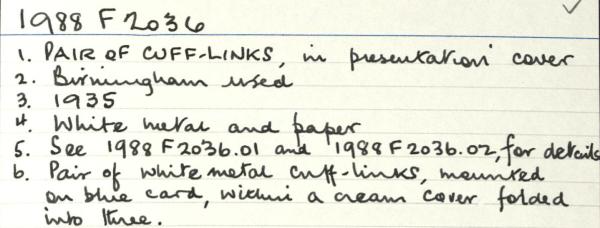 1988 F 2036
1. PAIR OF CUFF-LINKS, in presentation cover
2. Birmingham used
3. 1935
4. White metal and paper
5. See 1988 F2036.01 and 1988 F2036.02, for details
6. Pair of white metal cuff-links, mounted
on blue card, within a cream cover folded
into three.